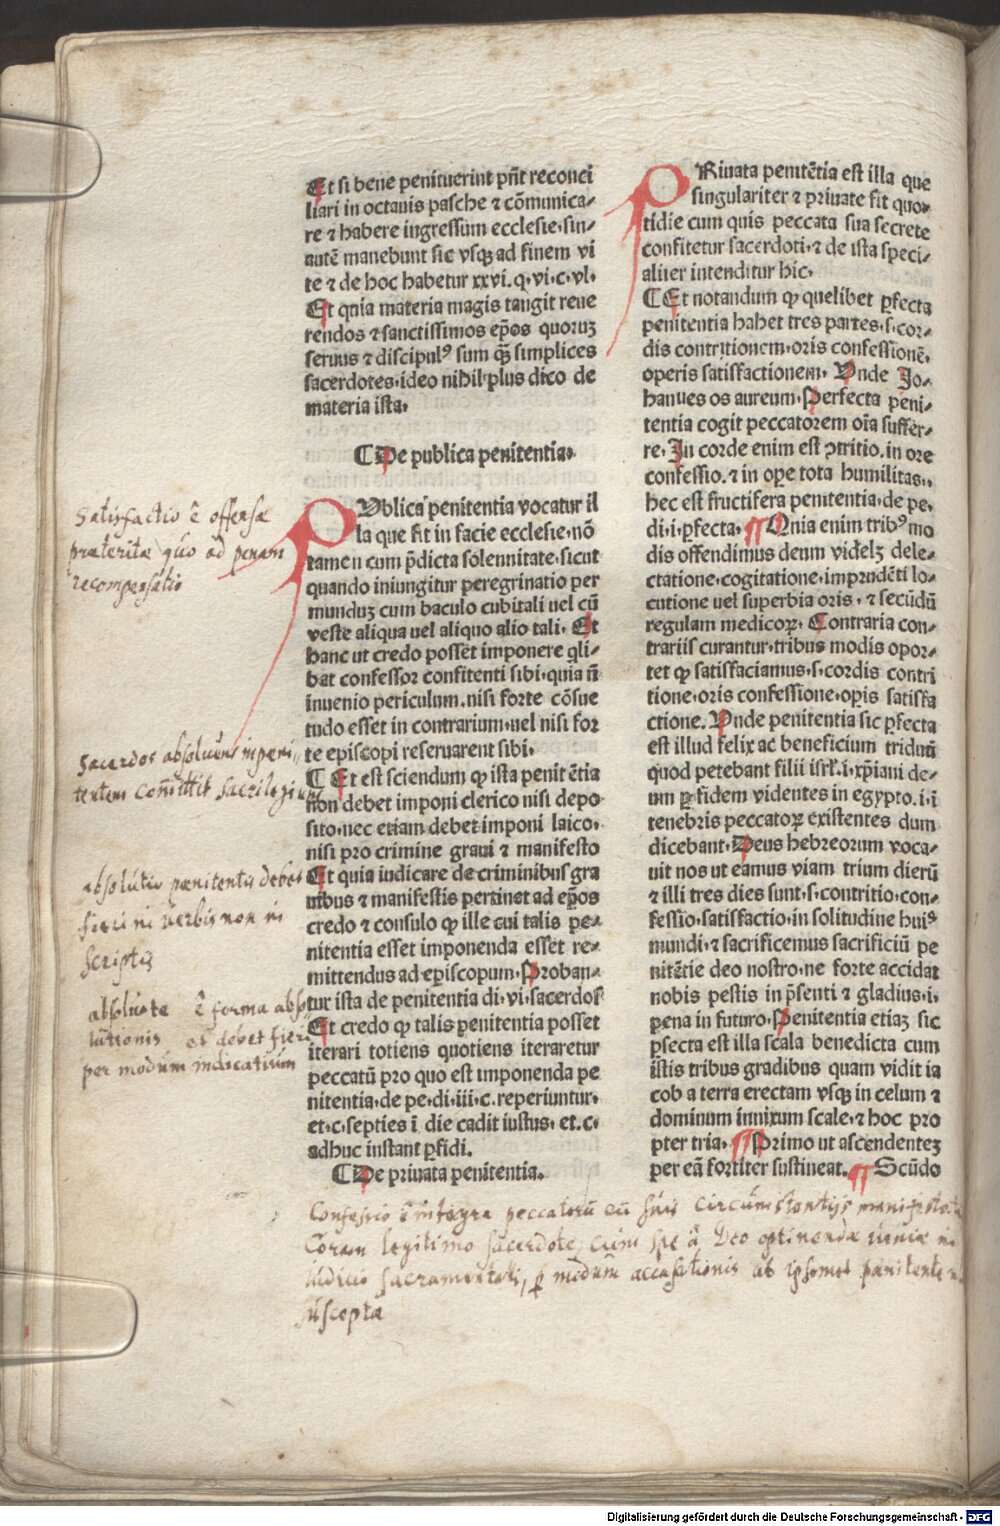 Et si bene penituerint pn̄t reconci
liari in octauis pasche ⁊ cōmunica-
re ⁊ habere ingressum ecclesie·sin-
autē manebunt sic vsq̨ ad finem vi
te ⁊ de hoc habetur xxvi·q·vi·c·vl·
Et quia materia magis tangit reue
rendos ⁊ sanctissimos ep̄os quoruꝫ
seruus ⁊ discipulꝰ sum q̄ꝫ simplices
sacerdotes·ideo nihil plus dico de
materia ista·
¶ De publica penitentia·
PVblica penitentia vocatur il
la que fit in facie ecclesie·nō
tamen cum p̄dicta solennitate·sicut
quando iniungitur peregrinatio per
munduꝫ cum baculo cubitali uel cū
veste aliqua uel aliquo alio tali· Et
hanc ut credo posset imponere q̄li-
bet confessor confitenti sibi·quia n̄
inuenio periculum·nisi forte cōsue
tudo esset in contrarium·uel nisi for
te episcopi reseruarent sibi·
¶ Et est sciendum ꝙ ista penitētia
non debet imponi clerico nisi depo
sito·nec etiam debet imponi laico·
nisi pro crimine graui ⁊ manifesto
Et quia iudicare de criminibus gra
uibus ⁊ manifestis pertinet ad ep̄os
credo ⁊ consulo ꝙ ille cui talis pe-
nitentia esset imponenda esset re-
mittendus ad ep̄iscopum·Proban-
tur ista de penitentia di·vi·sacerdos
Et credo ꝙ talis penitentia posset
iterari totiens quotiens iteraretur
peccatū pro quo est imponenda pe
nitentia·de pe·di·iii·c·reperiuntur·
et·c·septies ī die cadit iustus· et·c·
adhuc instant ꝑfidi.
¶ De priuata penitentia.
PRiuata penitētia est illa que
singulariter ⁊ priuate fit quo-
tidie cum quis peccata sua secrete
confitetur sacerdoti·⁊ de ista speci-
aliter intenditur hic·
¶ Et notandum ꝙ quelibet ꝑfecta
penitentia habet tres partes·s·cor-
dis contritionem·oris confessionē·
operis satisfactionem· Vnde Jo-
hannes os aureum·Perfecta peni-
tentia cogit peccatorem oīa suffer-
re·In corde enim est ꝯtritio.in ore
confessio.⁊ in oꝑe tota humilitas·
hec est fructifera penitentia·de pe·
di·i·ꝑfecta· ¶ Quia enim tribꝰ mo
dis offendimus deum videlꝫ dele-
ctatione·cogitatione·imprudēti lo-
cutione uel superbia oris·⁊ secūdū
regulam medicoꝝ· Contraria con-
trariis curantur·tribus modis opor-
tet ꝙ satisfaciamus·s·cordis contri
tione·oris confessione·oꝑis satisfa
ctione. Vnde penitentia sic ꝑfecta
est illud felix ac beneficium triduū
quod petebant filii isrl̄·i·xp̄iani de-
um ꝑ fidem videntes in egypto.i·ī
tenebris peccatoꝝ existentes dum
dicebant·Deus hebreorum voca-
uit nos ut eamus viam trium dierū
⁊ illi tres dies sunt·s·contritio·con-
fessio·satisfactio·in solitudine huiꝰ
mundi·⁊ sacrificemus sacrificiū pe
nitētie deo nostro·ne forte accidat
nobis pestis in p̄senti ⁊ gladius·i·
pena in futuro·Penitentia etiaꝫ sic
ꝑfecta est illa scala benedicta cum
istis tribus gradibus quam vidit ia
cob a terra erectam vsq̨ in celum ⁊
dominum innixum scale·⁊ hoc pro
pter tria· ¶ Primo ut ascendenteꝫ
per eā fortiter sustineat. ¶ Scūdo
Satisfactio ē offensæ
præteritæ quo ad penam
recompensatio
Sacerdos absoluens inpeni-
tentem Com̄ittit sacrilegium
absolutio pœnitentis debet
fieri in verbis non in
scriptis
absoluo te ē forma abso
lutionis et debet fieri
per modum indicatiuum
Confessio ē integra peccatorū cū suis circumstantijs manifestata
Coram legitimo sacerdote, cum spe â Deo optinendæ veniæ in
iudicio sacramentali, ꝑ modum accusationis ab ipsomet pœnitente
suscepta
Digitalisierung gefördert durch die Deutsche Forschungsgemeinschaft - DFG